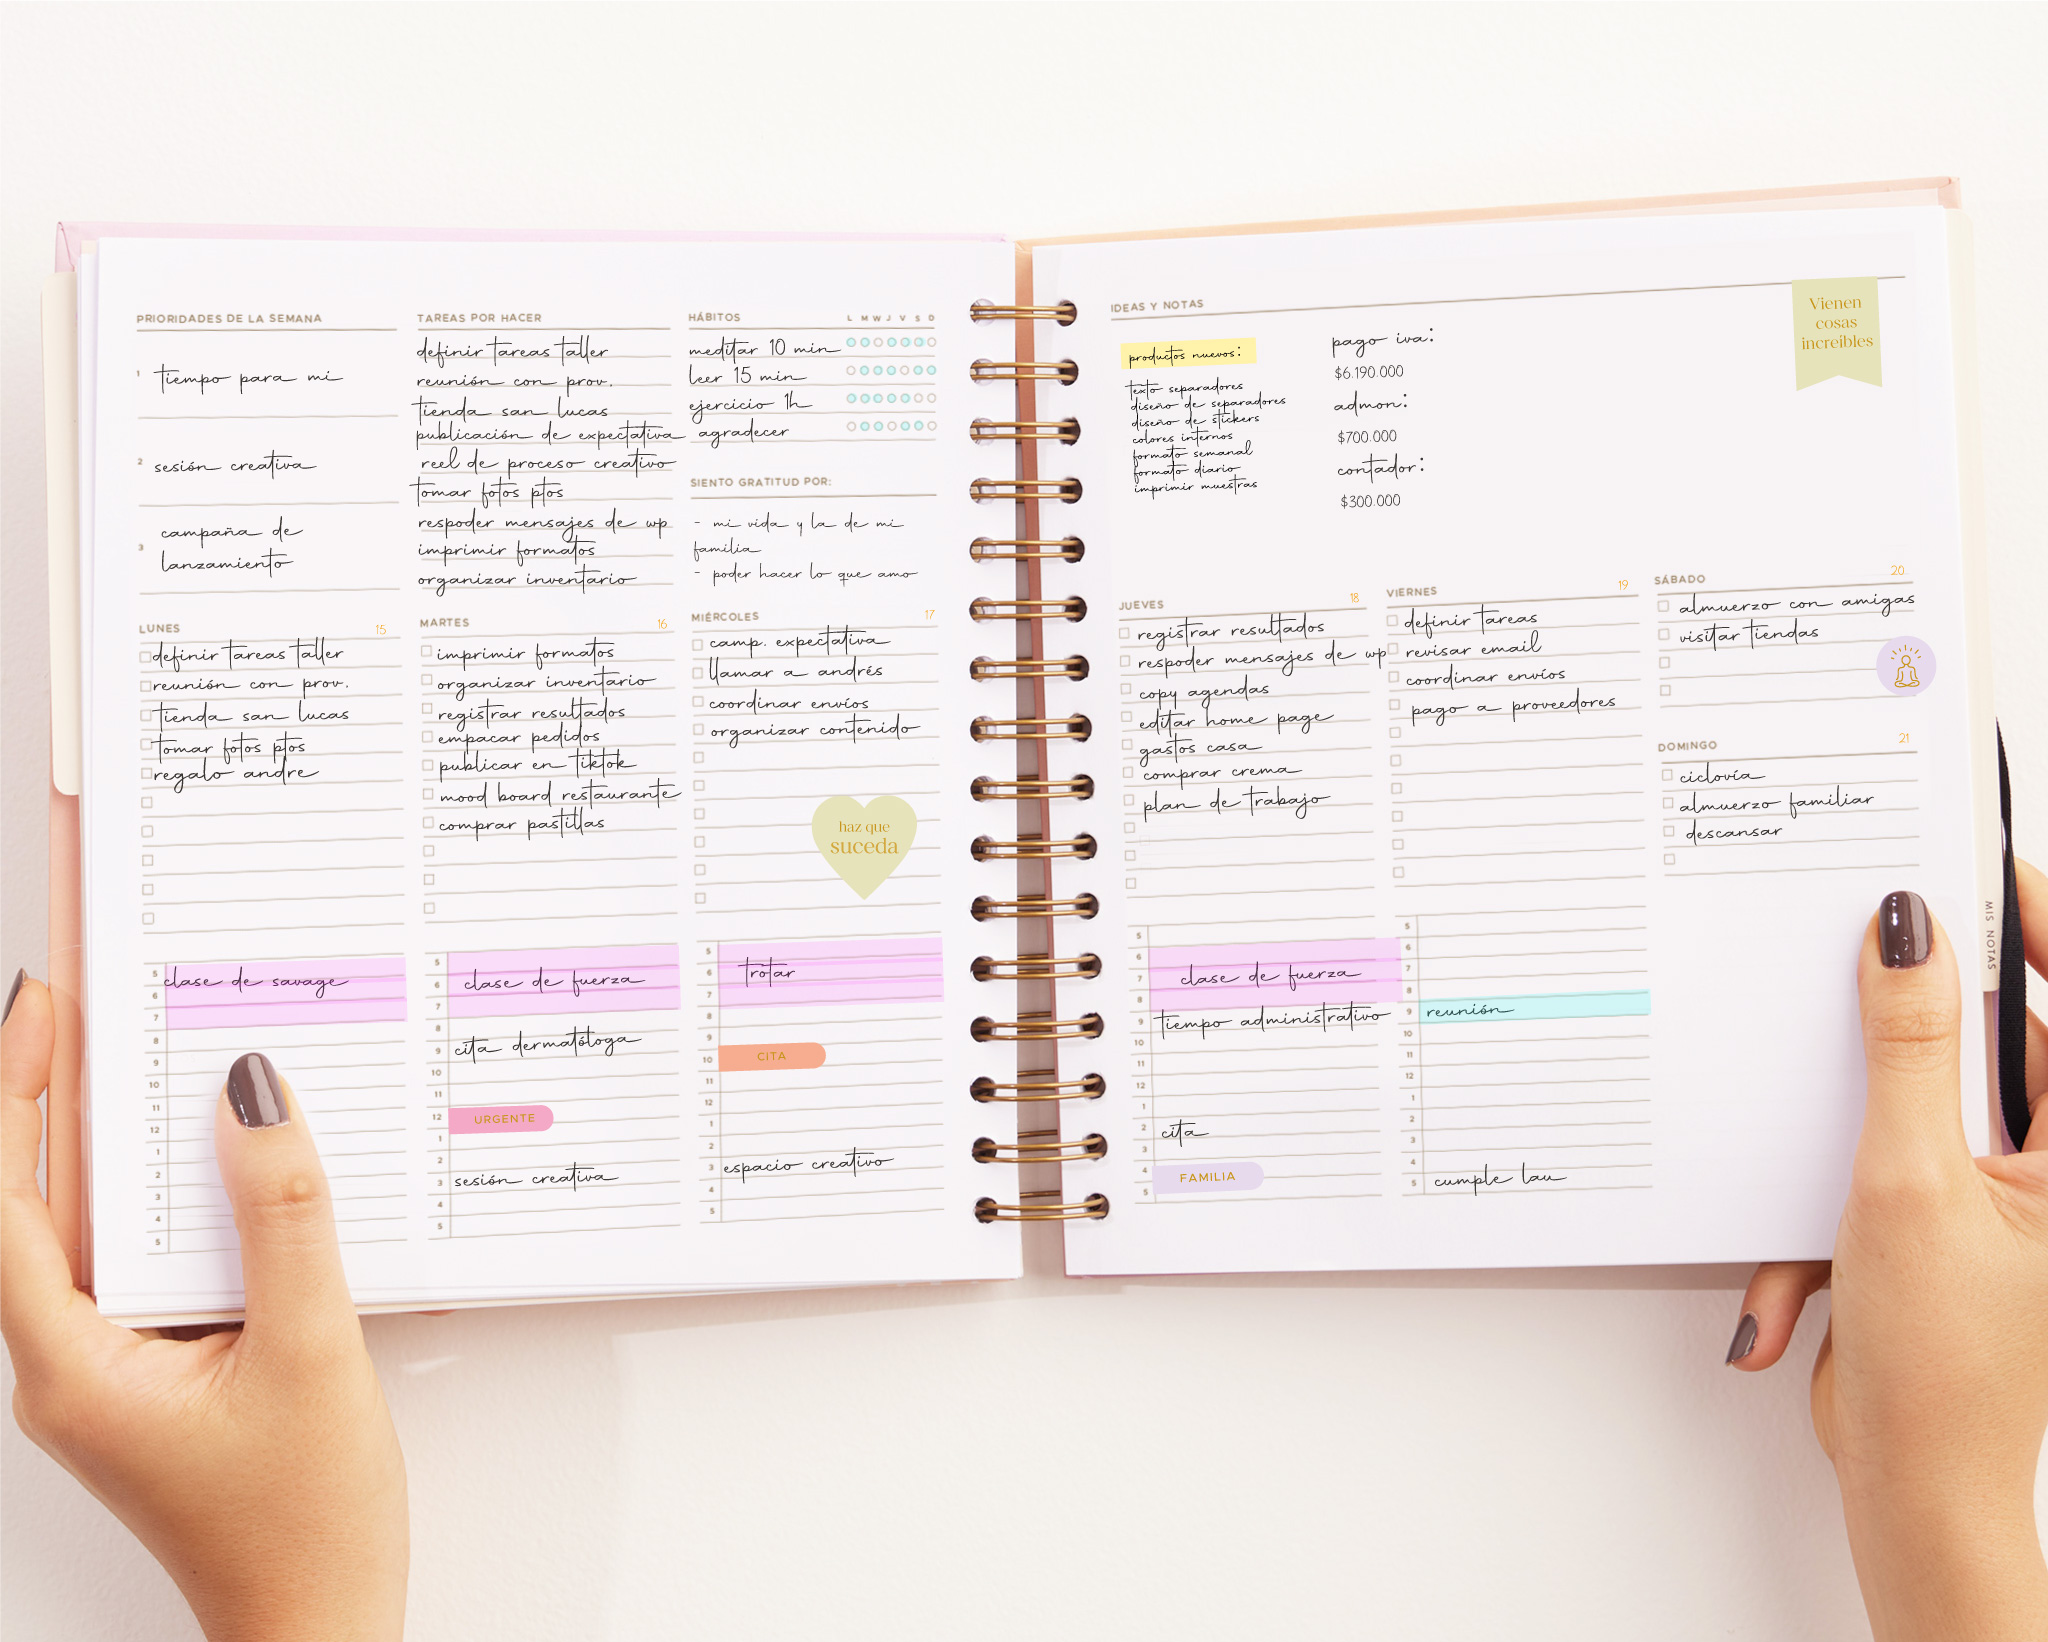 PRIORIDADES DE LA SEMANA
1
tiempo para mi
2
sesión creativa
3
campaña de
lanzamiento
TAREAS POR HACER
definir tareas taller
reunión con prov.
tienda san lucas
publicación de expectativa
reel de proceso creativo
tomar fotos ptos
respoder mensajes de wp
imprimir formatos
organizar inventario
HÁBITOS
L M W J V S D
meditar 10 min
leer 15 min
ejercicio 1h
agradecer
SIENTO GRATITUD POR:
- mi vida y la de mi
familia
- poder hacer lo que amo
LUNES 15
definir tareas taller
reunión con prov.
tienda san lucas
tomar fotos ptos
regalo andre
5
clase de savage
6
7
8
9
10
11
12
1
2
3
4
5
MARTES 16
imprimir formatos
organizar inventario
registrar resultados
empacar pedidos
publicar en tiktok
mood board restaurante
comprar pastillas
5
6 clase de fuerza
7
8
9 cita dermatóloga
10
12 URGENTE
1
2
3 sesión creativa
4
5
MIÉRCOLES 17
camp. expectativa
llamar a andrés
coordinar envíos
organizar contenido
haz que
suceda
5
6 trotar
7
8
9
10 CITA
11
12
1
2
3 espacio creativo
4
5
IDEAS Y NOTAS
productos nuevos:
texto separadores
diseño de separadores
diseño de stickers
colores internos
formato semanal
formato diario
imprimir muestras
pago iva:
$6.190.000
admon:
$700.000
contador:
$300.000
Vienen
cosas
increíbles
JUEVES 18
registrar resultados
respoder mensajes de wp
copy agendas
editar home page
gastos casa
comprar crema
plan de trabajo
5
6
7 clase de fuerza
8
9 tiempo administrativo
10
11
12
1
2 cita
3
4 FAMILIA
5
VIERNES 19
definir tareas
revisar email
coordinar envíos
pago a proveedores
5
6
7
8
9 reunión
10
11
12
1
2
3
4
5 cumple lau
SÁBADO 20
almuerzo con amigas
visitar tiendas
DOMINGO 21
ciclovía
almuerzo familiar
descansar
MIS NOTAS